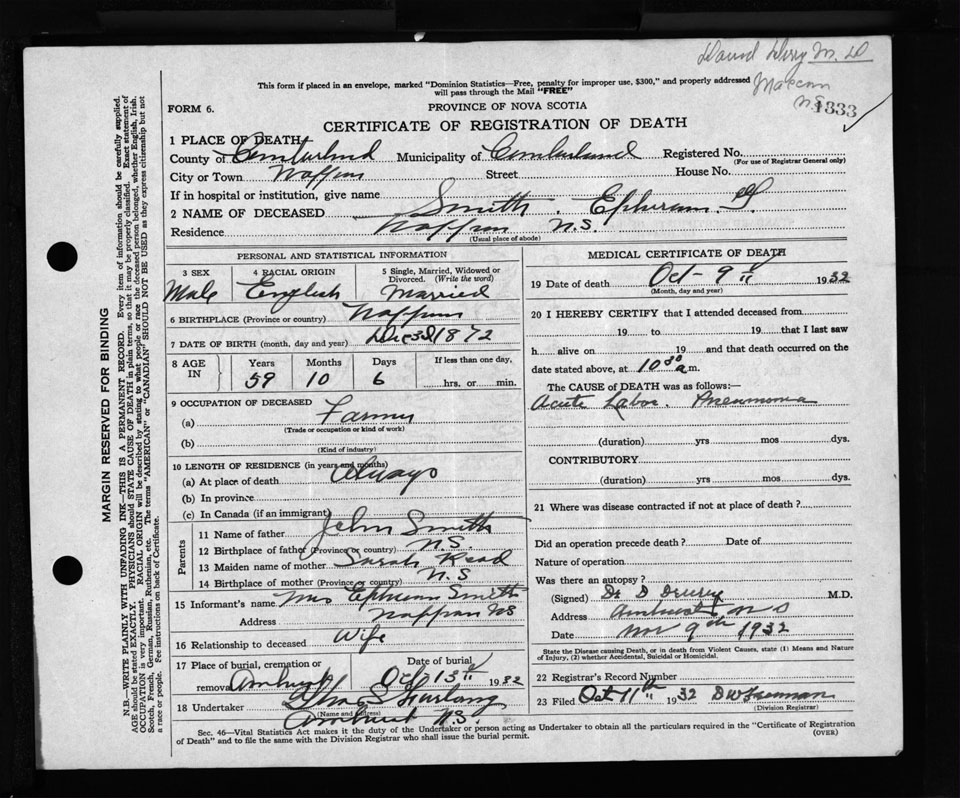 David Drury M.D
Maccan
N.S
This form if placed in an envelope, marked "Dominion Statistics—Free, penalty for improper use, $300," and properly addressed
will pass through the Mail "FREE"
1333
FORM 6.
PROVINCE OF NOVA SCOTIA
CERTIFICATE OF REGISTRATION OF DEATH
1 PLACE OF DEATH
County of Cumberland Municipality of Cumberland Registered No.
(For use of Registrar General only)
City or Town Nappan Street House No.
If in hospital or institution, give name
2 NAME OF DECEASED Smith, Ephream
Residence Nappan N.S.
(Usual place of abode)
PERSONAL AND STATISTICAL INFORMATION
3 SEX 4 RACIAL ORIGIN 5 Single, Married, Widowed or Divorced. (Write the word)
Male English Married
6 BIRTHPLACE (Province or country) Nappan
7 DATE OF BIRTH (month, day and year) Dec 3d 1872
8 AGE IN Years Months Days If less than one day,
59 10 6 hrs. or min.
9 OCCUPATION OF DECEASED
(a) Farmer
(Trade or occupation or kind of work)
(b)
(Kind of industry)
10 LENGTH OF RESIDENCE (in years and months)
(a) At place of death Always
(b) In province
(c) In Canada (if an immigrant)
Parents
11 Name of father John Smith
12 Birthplace of father (Province or country) N.S.
13 Maiden name of mother Sarah Read
14 Birthplace of mother (Province or country) N.S
15 Informant's name Mrs Ephream Smith
Address Nappan NS
16 Relationship to deceased Wife
17 Place of burial, cremation or removal Amherst Date of burial Oct 13 1932
18 Undertaker Furlong
(Name and address)
Amherst N.S.
MEDICAL CERTIFICATE OF DEATH
19 Date of death Oct - 9 1932
(Month, day and year)
20 I HEREBY CERTIFY that I attended deceased from
19 to 19 that I last saw
h alive on 19 and that death occurred on the
date stated above, at 10 30 a.m.
The CAUSE of DEATH was as follows:—
Acute Lobar Pneumonia
(duration) yrs mos dys.
CONTRIBUTORY
(duration) yrs mos dys.
21 Where was disease contracted if not at place of death?
Did an operation precede death? Date of
Nature of operation
Was there an autopsy?
(Signed) Dr D Drury M.D.
Address Amherst N S
Date Nov 9th 1932
State the Disease causing Death, or in death from Violent Causes, state (1) Means and Nature
of Injury, (2) whether Accidental, Suicidal or Homicidal.
22 Registrar's Record Number
23 Filed Oct 11th 1932 D W Freeman
(Division Registrar)
Sec. 46—Vital Statistics Act makes it the duty of the Undertaker or person acting as Undertaker to obtain all the particulars required in the "Certificate of Registration
of Death" and to file the same with the Division Registrar who shall issue the burial permit.
(OVER)
MARGIN RESERVED FOR BINDING
N.B.—WRITE PLAINLY WITH UNFADING INK—THIS IS A PERMANENT RECORD. Every item of information should be carefully supplied.
AGE should be stated EXACTLY. PHYSICIANS should STATE CAUSE OF DEATH in plain terms, so that it may be properly classified. Exact statement of
OCCUPATION is very important. RACIAL ORIGIN will be described by stating to what people or race the deceased person belonged, whether English, Irish,
Scotch, French, German, Russian, Ruthenian, etc. The terms "AMERICAN" or "CANADIAN" SHOULD NOT BE USED as they express citizenship but not
a race or people. Fee instructions on back of Certificate.